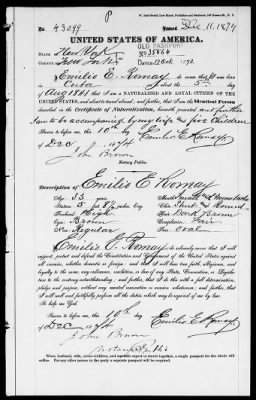 No 43099
Issued Dec. 11. 1874
UNITED STATES OF AMERICA.
OLD PASSPORT
STATE OF New York
No 35864
COUNTY OF New York
DATED 12 Oct 1873
I, Emilio E. Romay do swear that I was born
in Cuba on or about the 5th day
of Aug 1841; that I am a NATURALIZED AND LOYAL CITIZEN OF THE
UNITED STATES, and about to travel abroad; and further, that I am the Identical Person
described in the Certificate of Naturalization, herewith presented and further
I am to be accompanied by my wife & five Children
Sworn to before me, this 10th day
of Dec 1874
Emilio E. Romay
John Brown
Notary Public.
Description of Emilio E Romay
Age: 33 years
Mouth:
Stature: 5 feet inches, Eng.
Chin: Short & Round
Forehead: High
Hair: Dark Brown
Eyes: Brown
Complexion: Fair
Nose: Regular
Face: Oval
I, Emilio E. Romay do solemnly swear that I will
support, protect and defend the Constitution and Government of the United States against
all enemies, whether domestic or foreign; and that I will bear true faith, allegiance, and
loyalty to the same, any ordinance, resolution, or law of any State, Convention, or Legislature
to the contrary notwithstanding; and further, that I do this with a full determination,
pledge and purpose, without any mental reservation or evasion whatsoever; and further,
that I will well and faithfully perform all the duties which may be required of me by law.
So help me God.
Sworn to before me, this 10th day
of Dec 1874
Emilio E. Romay
John Brown
Notary Public
When husband, wife, minor children, and servants expect to travel together, a single passport for the whole will
suffice. For any other person in the party a separate passport will be required.